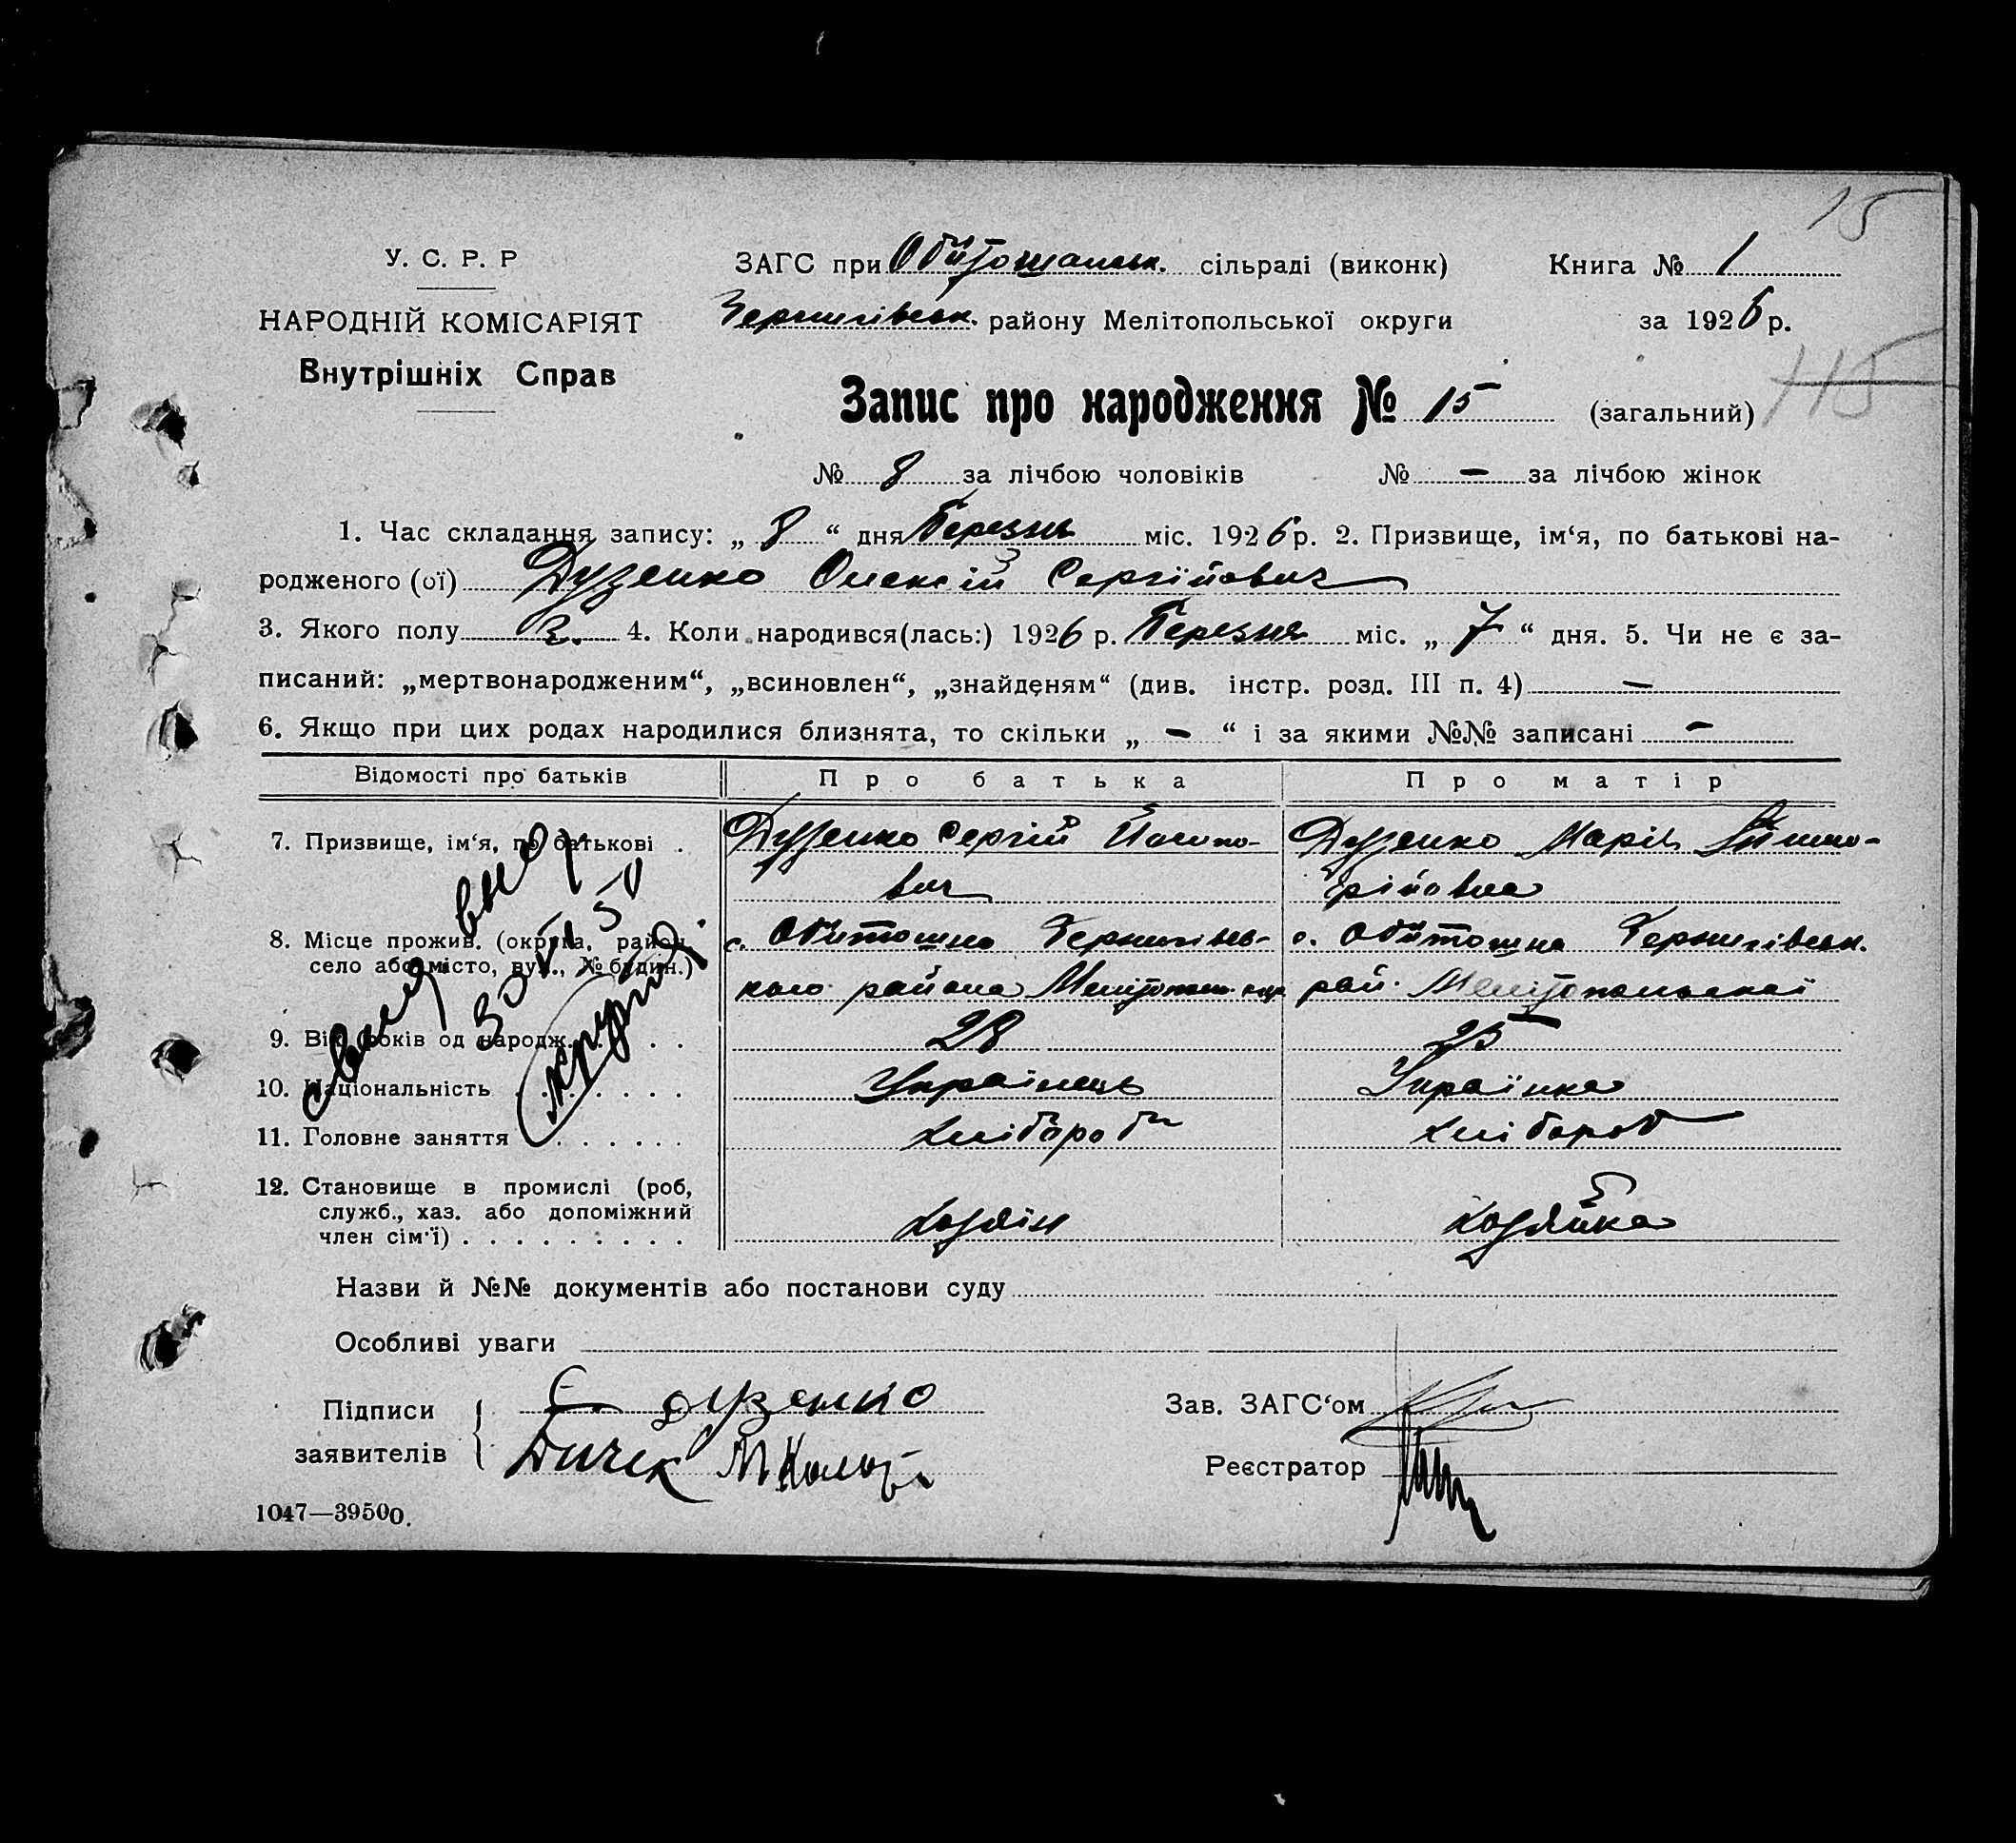 15
У. С. Р. Р
НАРОДНІЙ КОМІСАРІЯТ
Внутрішніх Справ
ЗАГС при Обітошанськ. сільраді (виконк)
Книга № 1
Чернигівськ. району Мелітопольської округи
за 1926 р.
Запис про народження № 15 (загальний) 115
№ 8 за лічбою чоловіків № – за лічбою жінок
1. Час складання запису: „ 8 “ дня Березня міс. 1926 р. 2. Призвище, ім‘я, по батькові на-
родженого (ої) Дузенко Олексій Сергійович
3. Якого полу ч. 4. Коли народився(лась:) 1926 р. Березня міс. „ 7 “ дня. 5. Чи не є за-
писаний: „мертвонародженим“, „всиновлен“, „знайденям“ (див. інстр. розд. III п. 4) –
6. Якщо при цих родах народилися близнята, то скільки „ – “ і за якими №№ записані –
Відомості про батьків Про батька Про матір
7. Призвище, ім‘я, по батькові . Дузенко Сергій Йосипо- Дузенко Марія
вич
8. Місце прожив. (округа, район, с. Обітошна Чернигівсь- с. Обітошна Чернигівськ.
село або місто, вул., № будин.) кого района Меліпол. окр рай. Мелітопольскої
9. Вік, років од народж. . . . 28 25
10. Національність . . . . . . Українець Українка
11. Головне заняття . . . . . . Хлібороб Хлібороб
12. Становище в промислі (роб,
служб., хаз. або допоміжний
член сім‘ї) . . . . . . . . . Хозяін Хозяйка
Назви й №№ документів або постанови суду
Особливі уваги
Підписи С Дузенко
заявителів Дичек
Зав. ЗАГС‘ом
Реєстратор
1047—39500.